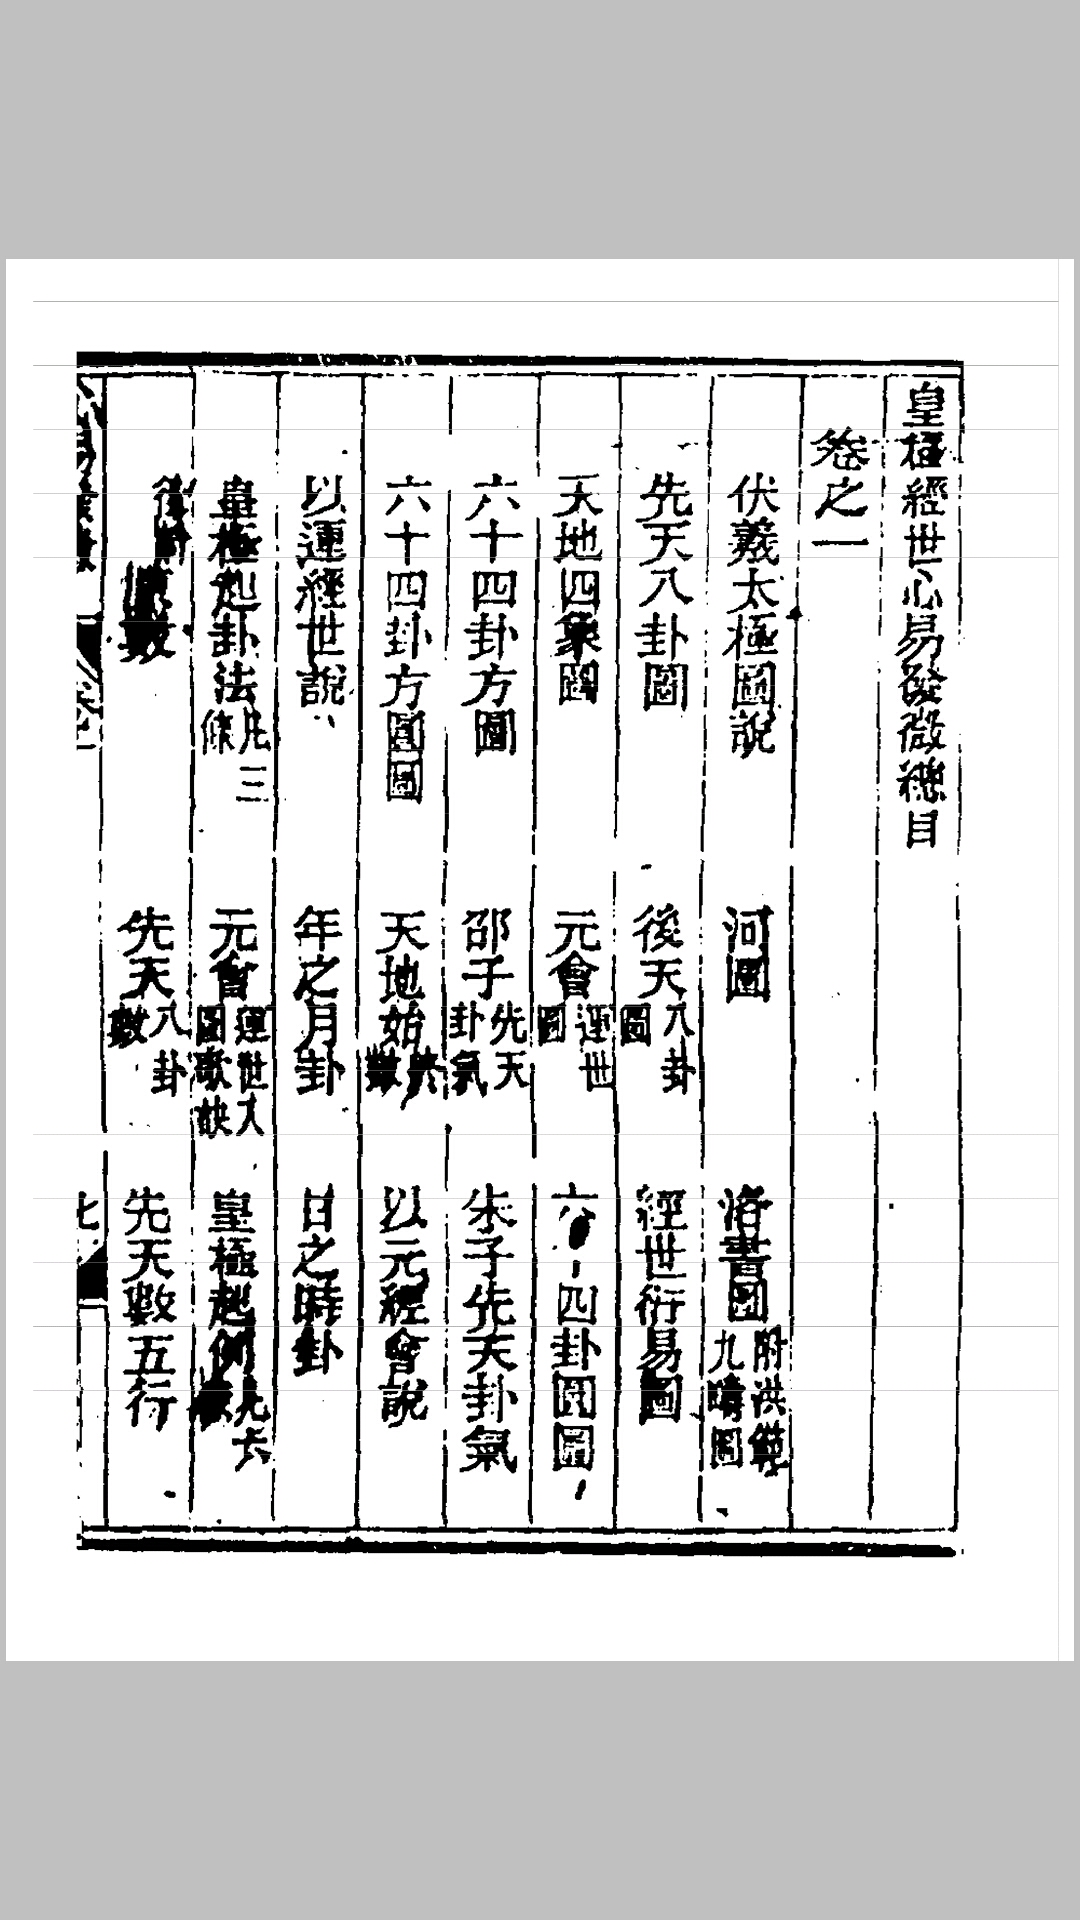 皇極經世心易發微總目
卷之一
伏羲太極圖說 河圖 洛書圖附洪範九疇圖
先天八卦圖 後天八卦圖 經世衍易圖
天地四象圖 元會運世圖 六十四卦圓圖
六十四卦方圖 邵子先天卦氣 朱子先天卦氣
六十四卦方圓圖 天地始終數 以元經會說
以運經世說 年之月卦 日之時卦
皇極起卦法凡三條 元會運世入圖歌訣 皇極起例凡
數 先天八卦數 先天數五行
七